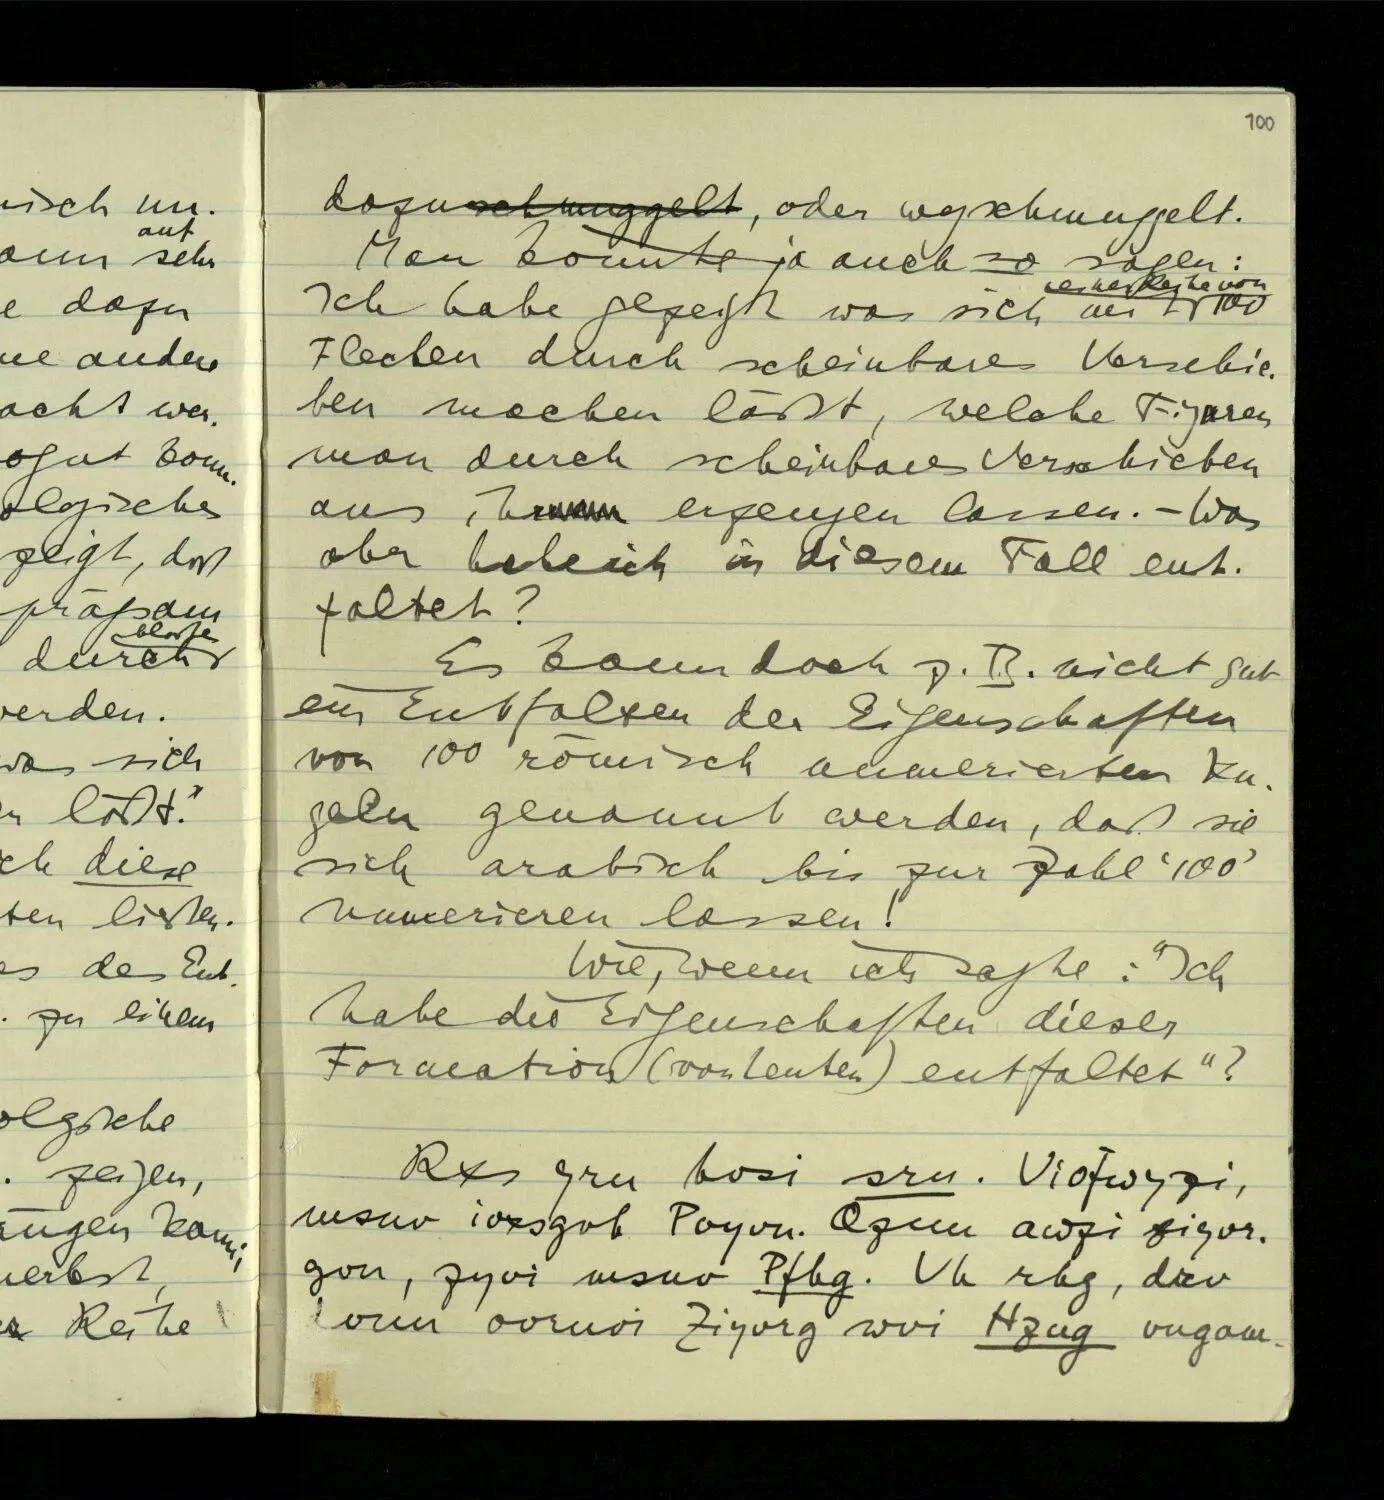 nisch un-
aut
ann sehr
e dazu
ne andere
acht wer-
ogut kann-
ologisches
zeigt, daß
präpsam
bloße
durch
werden.
was sich
n läßt."
ch diese
ten ließen.
es des Ent-
. zu einem
olgische
. zeigen,
ängen kann;
erbst,
Reihe
100
dazuschmuggelt, oder wegschmuggelt.
Man könnte ja auch so sagen:
einer Reihe von
Ich habe gezeigt was sich mit 100
Flecken durch scheinbares Verschie-
ben machen läßt, welche Figuren
man durch scheinbares Verschieben
aus ihr erzeugen lassen. – Was
aber habe ich in diesem Fall ent-
faltet?
Es kann doch z.B. nicht gut
ein Entfalten der Eigenschaften
von 100 römisch numerierten Ku-
geln genannt werden, daß sie
sich arabisch bis zur Zahl '100'
numerieren lassen!
Wie, wenn ich sagte: "Ich
habe die Eigenschaften dieser
Formation (von Leuten) entfaltet"?
Rxs yrn hvsi srn. Viofwyzi,
msnv ivxsgvh Pvyvn. Qznn adzi ziyvr-
gvn, zyvi msnv Pfhg. Vh rhg, drv
dvnn ovrnvi Ziyvrg wvi Hzug vngam-